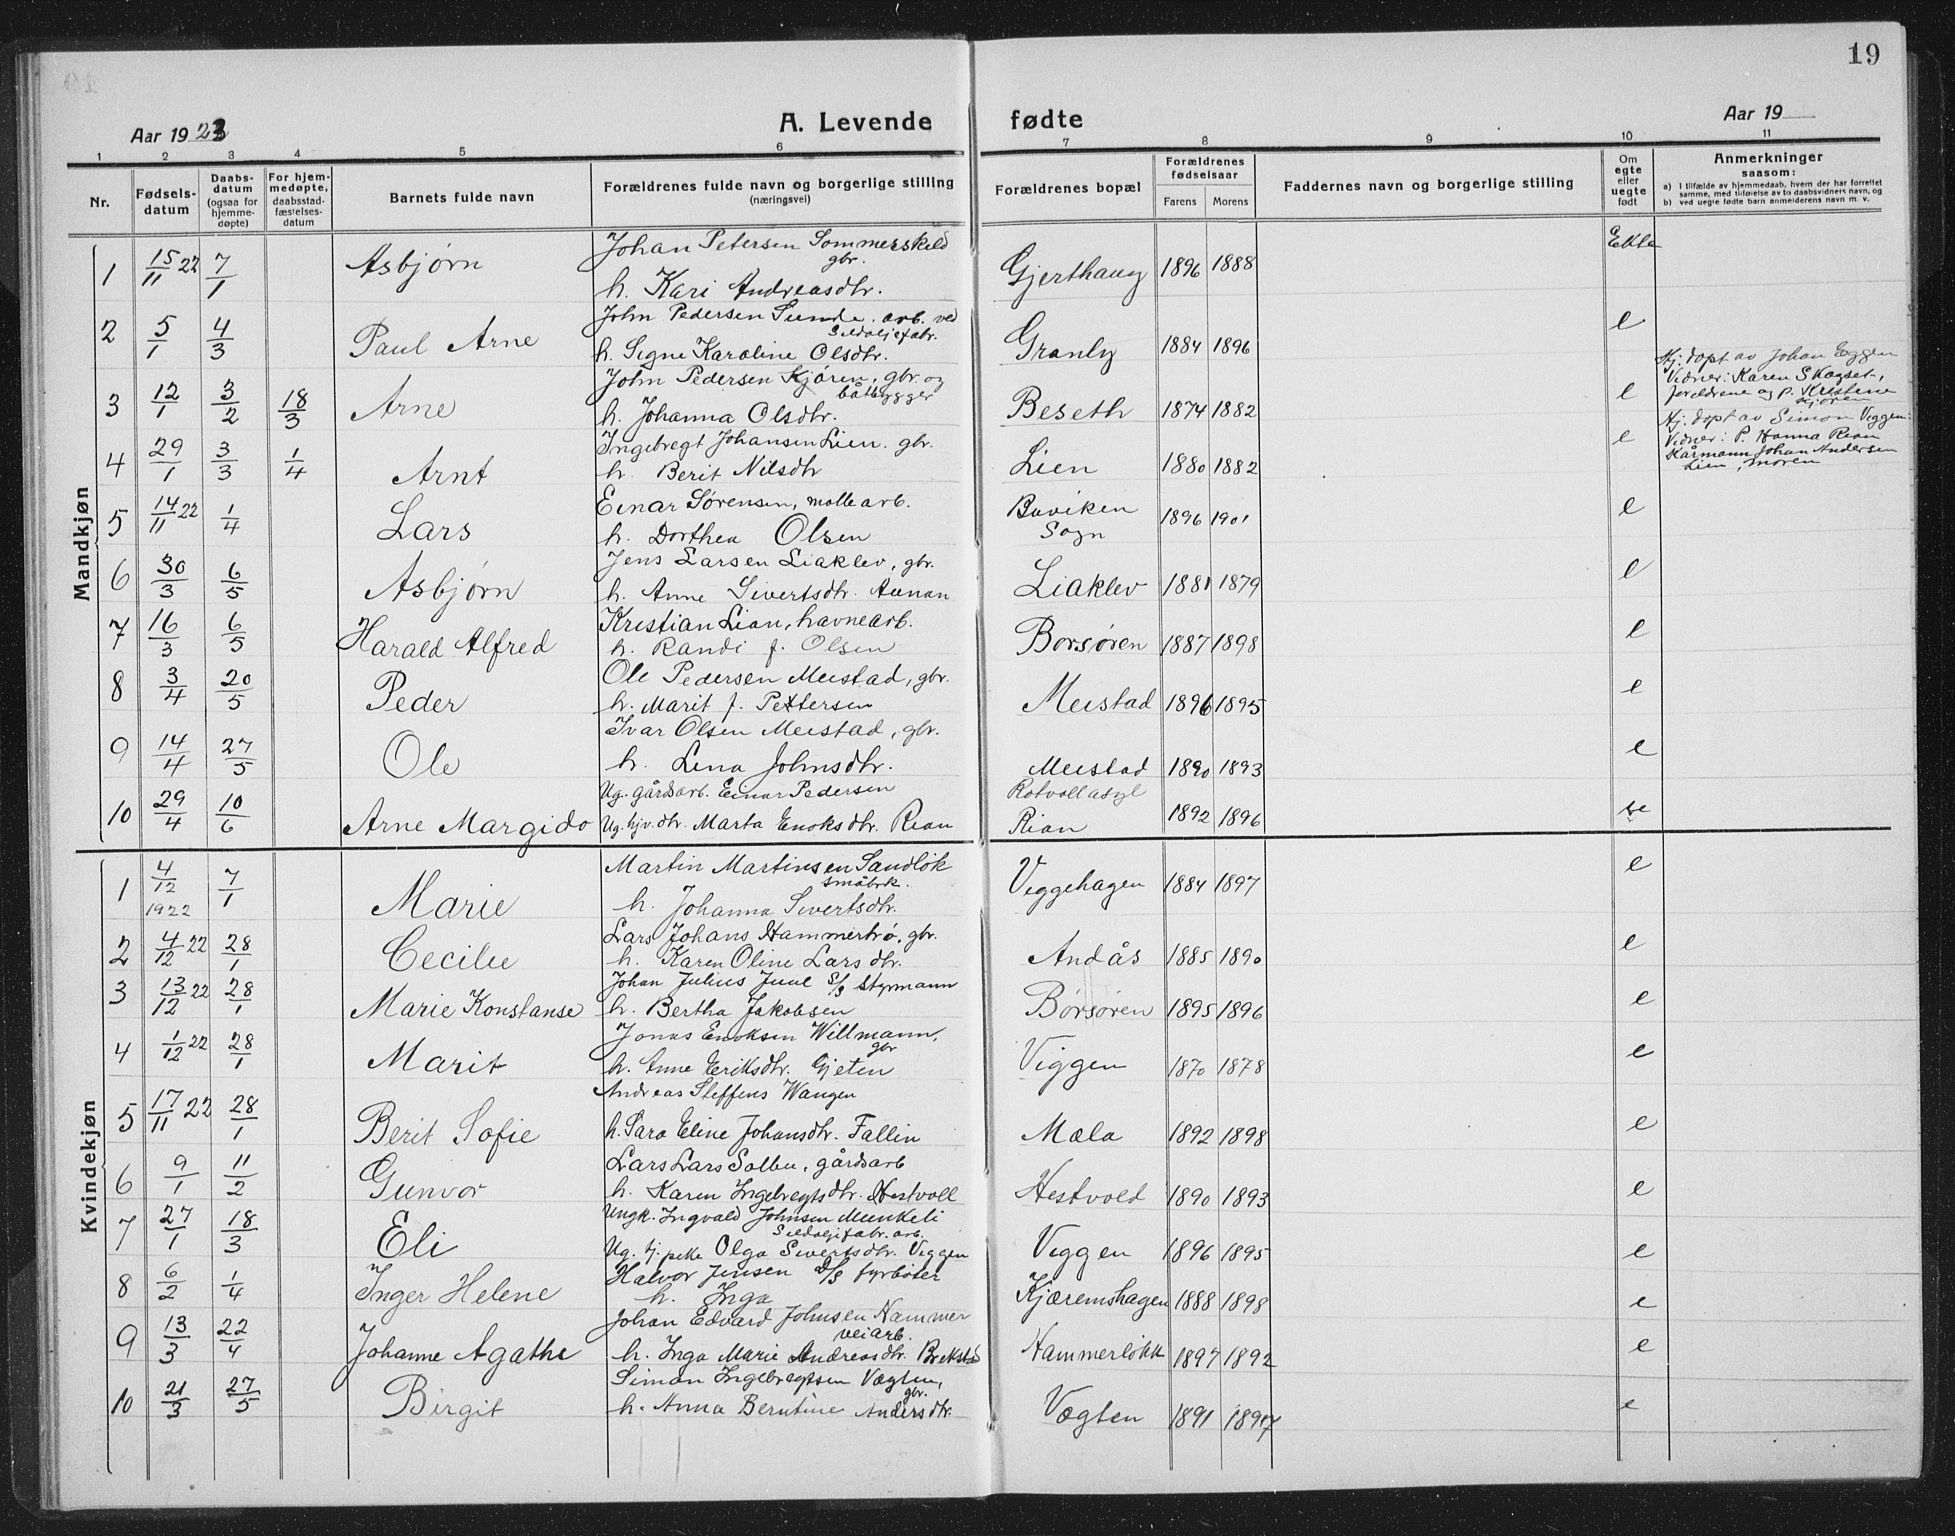 19
Aar 1923 A. Levende fødte Aar 19
1 2 3 4 5 6 7 8 9 10 11
Nr. Fødselsdatum Daabsdatum (ogsaa for hjemmedøpte) For hjemmedøpte, daabsstadfæstelsesdatum Barnets fulde navn Forældrenes fulde navn og borgerlige stilling (næringsvei) Forældrenes bopæl Forældrenes fødselsaar Farens Morens Faddernes navn og borgerlige stilling Om egte eller uegte født Anmerkninger saasom:
a) I tilfælde av hjemmedaab, hvem der har forrettet samme, med tilføielse av to daabsvidners navn, og
b) ved uegte fødte barn anmelderens navn m. v.
Mandkjøn
1 15/11 22 7/1 Asbjørn Johan Petersen Sommerskild gbr. Gjerthaug 1896 1888 Ekte
h. Kari Andreasdtr.
2 5/1 4/3 Paul Arne John Pedersen Sunde, arb. ved Sildoljefabr. Granly 1884 1896 e
h. Signe Karoline Olsdtr.
3 12/1 3/2 18/3 Arne John Pedersen Kjøren, gbr. og båtbygger Beseth 1874 1882 e Hj. døpt av Johan Eggen
h. Johanna Olsdtr. Vidner: Karen Skogset, forældrene og p. Kristine Kjøren
4 29/1 3/3 1/4 Arnt Ingebregt Johansen Lien. gbr. Lien 1880 1882 e Hj. døpt av Simon Viggen.
h. Berit Nilsdtr Vidner: P. Hanna Rian Kårmann Johan Andersen Lien, moren
5 14/11 22 1/4 Lars Einar Sørensen, møllearb. Buviken Sogn 1896 1901 e
h. Dorthea Olsen
6 30/3 6/5 Asbjørn Jens Larsen Liaklev, gbr. Liaklev 1881 1879 e
h. Anne Sivertsdtr. Aunan
7 16/3 6/5 Harald Alfred Kristian Lian, havnearb. Børsøren 1887 1898 e
h. Randi f. Olsen
8 3/4 20/5 Peder Ole Pedersen Meistad, gbr. Meistad 1896 1895 e
h. Marit f. Pettersen
9 14/4 27/5 Ole Ivar Olsen Meistad, gbr. Meistad 1890 1893 e
h. Lina Johnsdtr.
10 29/4 10/6 Arne Margido Ug. gårdsarb. Einar Pedersen Rotvoll asyl 1892 1896
Ug. hjv. dtr. Marta Enoksdtr. Rian Rian
Kvindekjøn
1 4/12 1922 7/1 Marie Martin Martinsen Sandløk småbrk. Viggehagen 1884 1897 e
h. Johanna Sivertsdtr.
2 4/12 22 28/1 Cecilie Lars Johans Hammertrø, gbr. Andås 1885 1890 e
h. Karen Oline Larsdtr.
3 13/12 22 28/1 Marie Konstanse Johan Julius Juul S/S styrmann Børsøren 1895 1896 e
h. Bertha Jakobsen
4 1/12 22 28/1 Marit Jonas Enoksen Willmann, gbr Viggen 1870 1878 e
h. Anne Eriksdtr. Gjeten
5 17/11 22 28/1 Berit Sofie Andreas Steffens Wangen Mæla 1892 1898 e
h. Sara Eline Johansdtr. Fallin
6 9/1 11/2 Gunvor Lars Lars Solbu, gårdsarb Hestvold 1890 1893 e
h. Karen Ingebregtsdtr. Hestvoll
7 27/1 18/3 Eli Ungk. Ingvald Johnsen Munkeli Sildoljefabr. arb. Viggen 1896 1895 e
Ug. tj. pike Olga Sivertsdtr. Viggen
8 6/2 1/4 Inger Helene Halvor Jensen D/S fyrbøter Kjæremshagen 1888 1898 e
h. Inga
9 13/3 22/4 Johanne Agathe Johan Edvard Johnsen Hammer veiarb. Hammerløkk 1897 1892 e
h. Inga Marie Andreasdtr. Brekstad
10 21/3 27/5 Birgit Simon Ingebregtsen Vægten, gbr. Vægten 1891 1897 e
h. Anna Berntine Andersdtr.